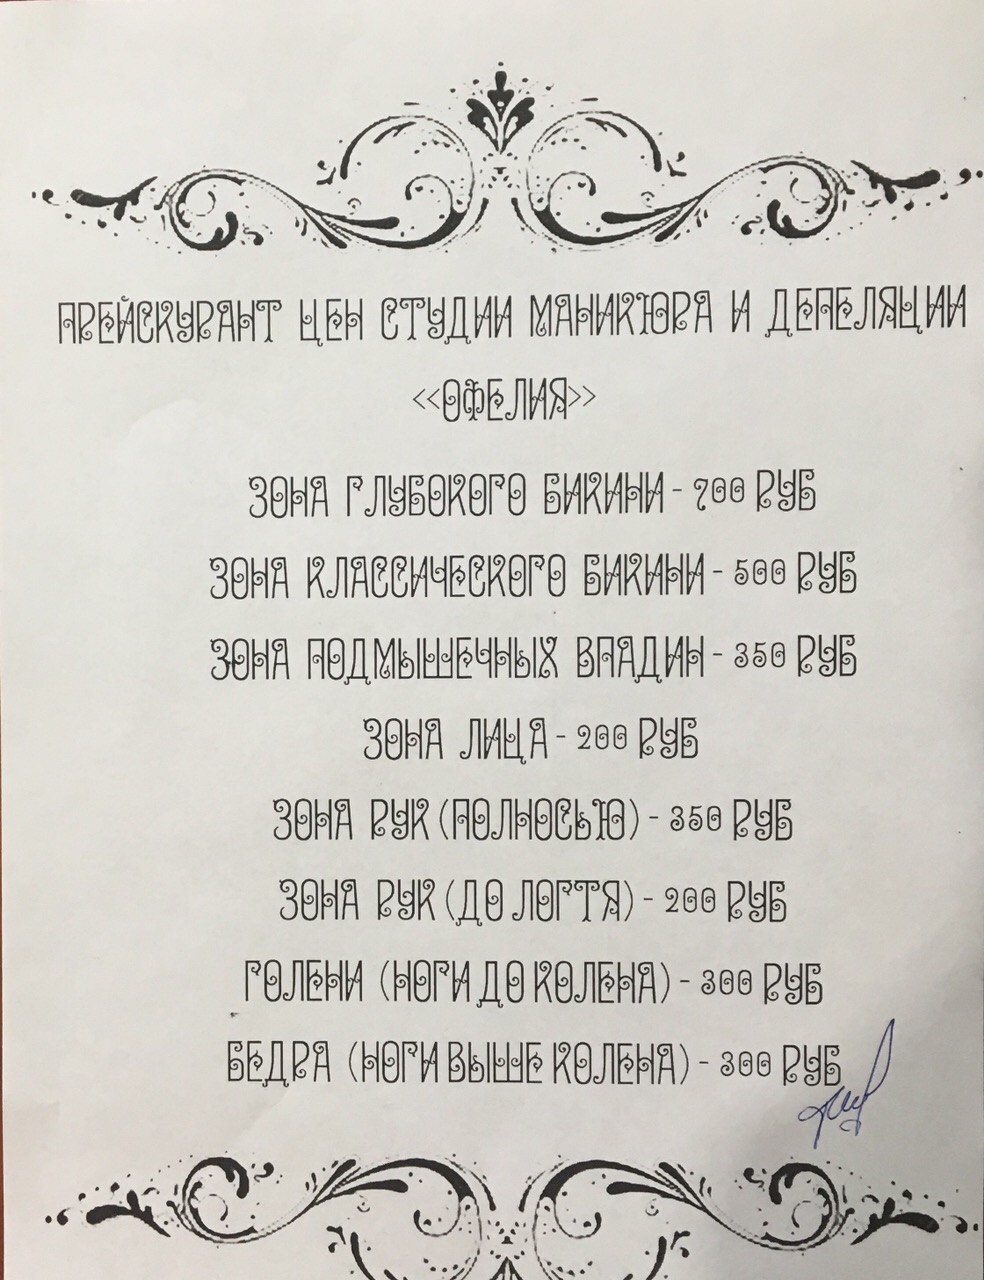 ПРЕЙСКУРАНТ ЦЕН СТУДИИ МАНИКЮРА И ДЕПЕЛЯЦИИ
<<ОФЕЛИЯ>>
ЗОНА ГЛУБОКОГО БИКИНИ - 700 РУБ
ЗОНА КЛАССИЧЕСКОГО БИКИНИ - 500 РУБ
ЗОНА ПОДМЫШЕЧНЫХ ВПАДИН - 350 РУБ
ЗОНА ЛИЦА - 200 РУБ
ЗОНА РУК (ПОЛНОСЬЮ) - 350 РУБ
ЗОНА РУК (ДО ЛОГТЯ) - 200 РУБ
ГОЛЕНИ (НОГИ ДО КОЛЕНА) - 300 РУБ
БЕДРА (НОГИ ВЫШЕ КОЛЕНА) - 300 РУБ